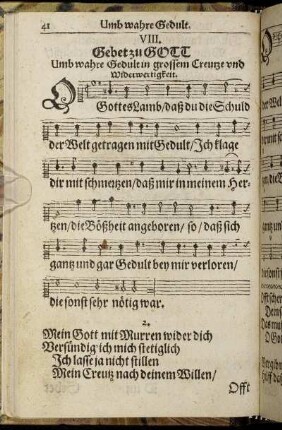 42 Umb wahre Gedult.
VIII.
Gebet zu GOTT
Umb wahre Gedult in grossem Creutze vnd
Widerwertigkeit.
O GottesLamb/daß du die Schuld
der Welt getragen mit Gedult/Ich klage
dir mit schmertzen/daß mir in meinem Her-
tzen/die Bößheit angeboren/so/daß sich
gantz und gar Gedult bey mir verloren/
die sonst sehr nötig war.
2.
Mein Gott mit Murren wider dich
Versündig ich mich stetiglich
Ich lasse ja nicht stillen
Mein Creutz nach deinem Willen/
Offt